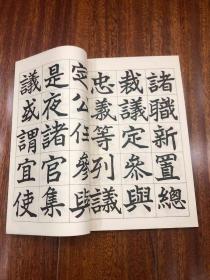 諸職新置總
裁議定參與
忠義等列議
定公任參與
是夜諸官集
議或謂宜使